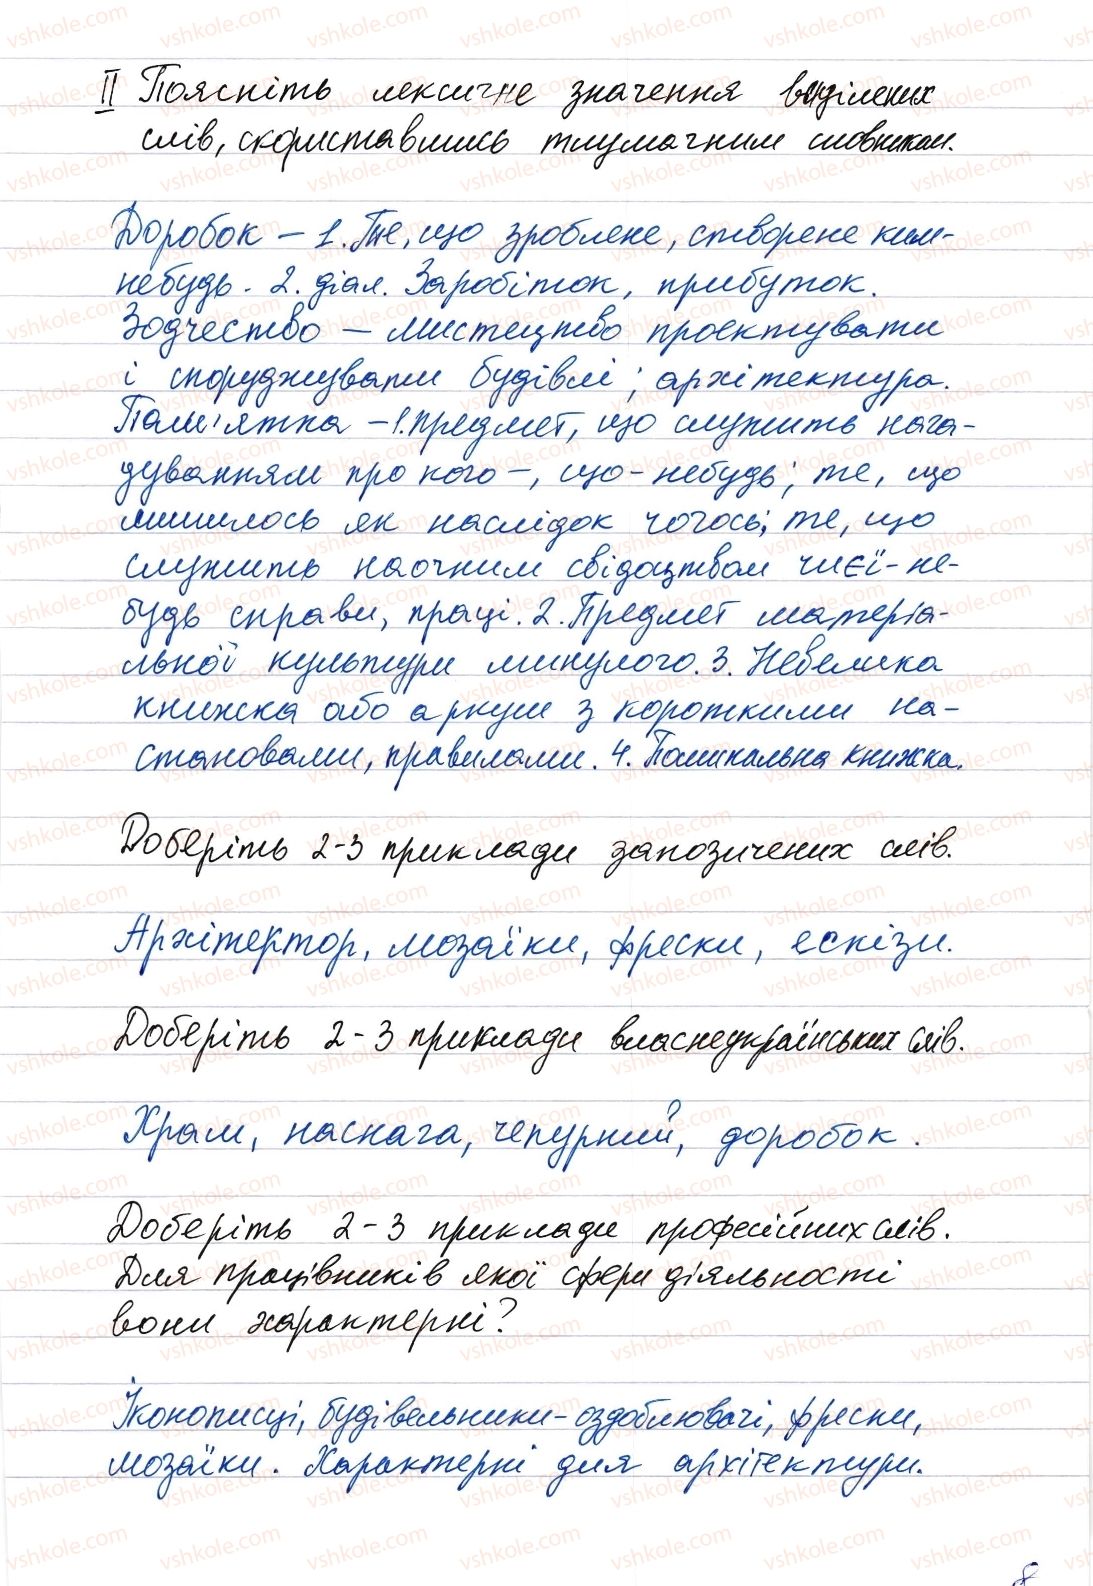 II Поясніть лексичне значення виділених
слів, скориставшись тлумачним словником.
Доробок – 1. Те, що зроблене, створене ким-
небудь. 2. діал. Заробіток, прибуток.
Зодчество – мистецтво проєктувати
і споруджувати будівлі; архітектура.
Пам'ятка – 1. предмет, що служить нага-
дуванням про кого-, що-небудь; те, що
лишилось як наслідок чогось; те, що
служить наочним свідоцтвом чиєї-не-
будь справи, праці. 2. Предмет матеріа-
льної культури минулого. 3. Невелика
книжка або аркуш з короткими на-
становами, правилами. 4. Поминальна книжка.
Доберіть 2-3 приклади запозичених слів.
Архітектор, мозаїки, фрески, ескізи.
Доберіть 2-3 приклади власнеукраїнських слів.
Храм, наснага, чепурний, доробок.
Доберіть 2-3 приклади професійних слів.
Для працівників якої сфери діяльності
вони характерні?
Іконописці, будівельники-оздоблювачі, фрески,
мозаїки. Характерні для архітектури.
8